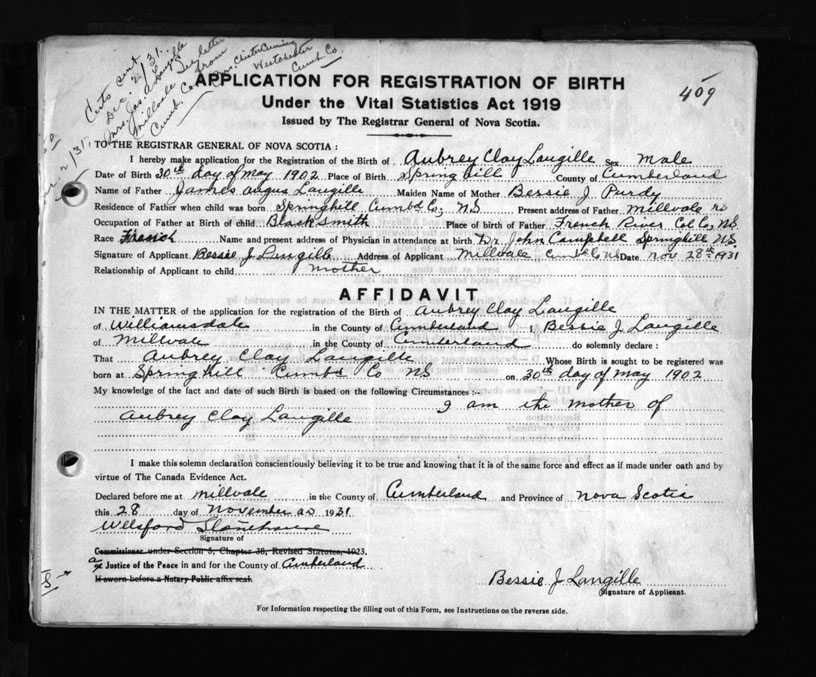 Certs sent
Dec. 2/31.
Mrs. Jas A Langille
Millvale See letter
Cumb. Co from
Mrs. Chester Cumming
Westchester
Cumb Co.
409
2/31,
APPLICATION FOR REGISTRATION OF BIRTH
Under the Vital Statistics Act 1919
Issued by The Registrar General of Nova Scotia.
TO THE REGISTRAR GENERAL OF NOVA SCOTIA:
I hereby make application for the Registration of the Birth of Aubrey Clay Langille Sex Male
Date of Birth 30th day of May 1902 Place of Birth Spring hill County of Cumberland
Name of Father James Angus Langille Maiden Name of Mother Bessie J Purdy
Residence of Father when child was born Springhill Cumbd Co, NS Present address of Father Millvale NS
Occupation of Father at Birth of child Black smith Place of birth of Father French River Col Co, NS
Race French Name and present address of Physician in attendance at birth Dr John Campbell Springhill NS.
Signature of Applicant Bessie J Langille Address of Applicant Millvale Cumb Co NS Date Nov 28th 1931
Relationship of Applicant to child mother
AFFIDAVIT
IN THE MATTER of the application for the registration of the Birth of Aubrey Clay Langille
of Williamsdale in the County of Cumberland I, Bessie J Langille
of Millvale of in the County of Cumberland do solemnly declare:
That Aubrey Clay Langille Whose Birth is sought to be registered was
born at Spring hill Cumbd Co NS on 30th day of May 1902
My knowledge of the fact and date of such Birth is based on the following Circumstances:-
I am the mother of
Aubrey Clay Langille
I make this solemn declaration conscientiously believing it to be true and knowing that it is of the same force and effect as if made under oath and by
virtue of The Canada Evidence Act.
Declared before me at Millvale in the County of Cumberland and Province of Nova Scotia
this 28 day of November AD 1931
Welsford Stonehouse
Signature of
Commissioner under Section 5, Chapter 38, Revised Statutes, 1923.
a Justice of the Peace in and for the County of Cumberland
If sworn before a Notary Public affix seal
Bessie J Langille
Signature of Applicant.
For Information respecting the filling out of this Form, see Instructions on the reverse side.